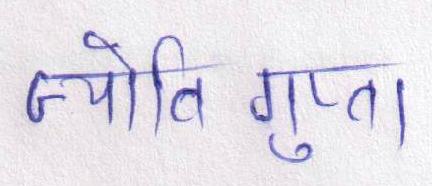 ज्योति गुप्ता